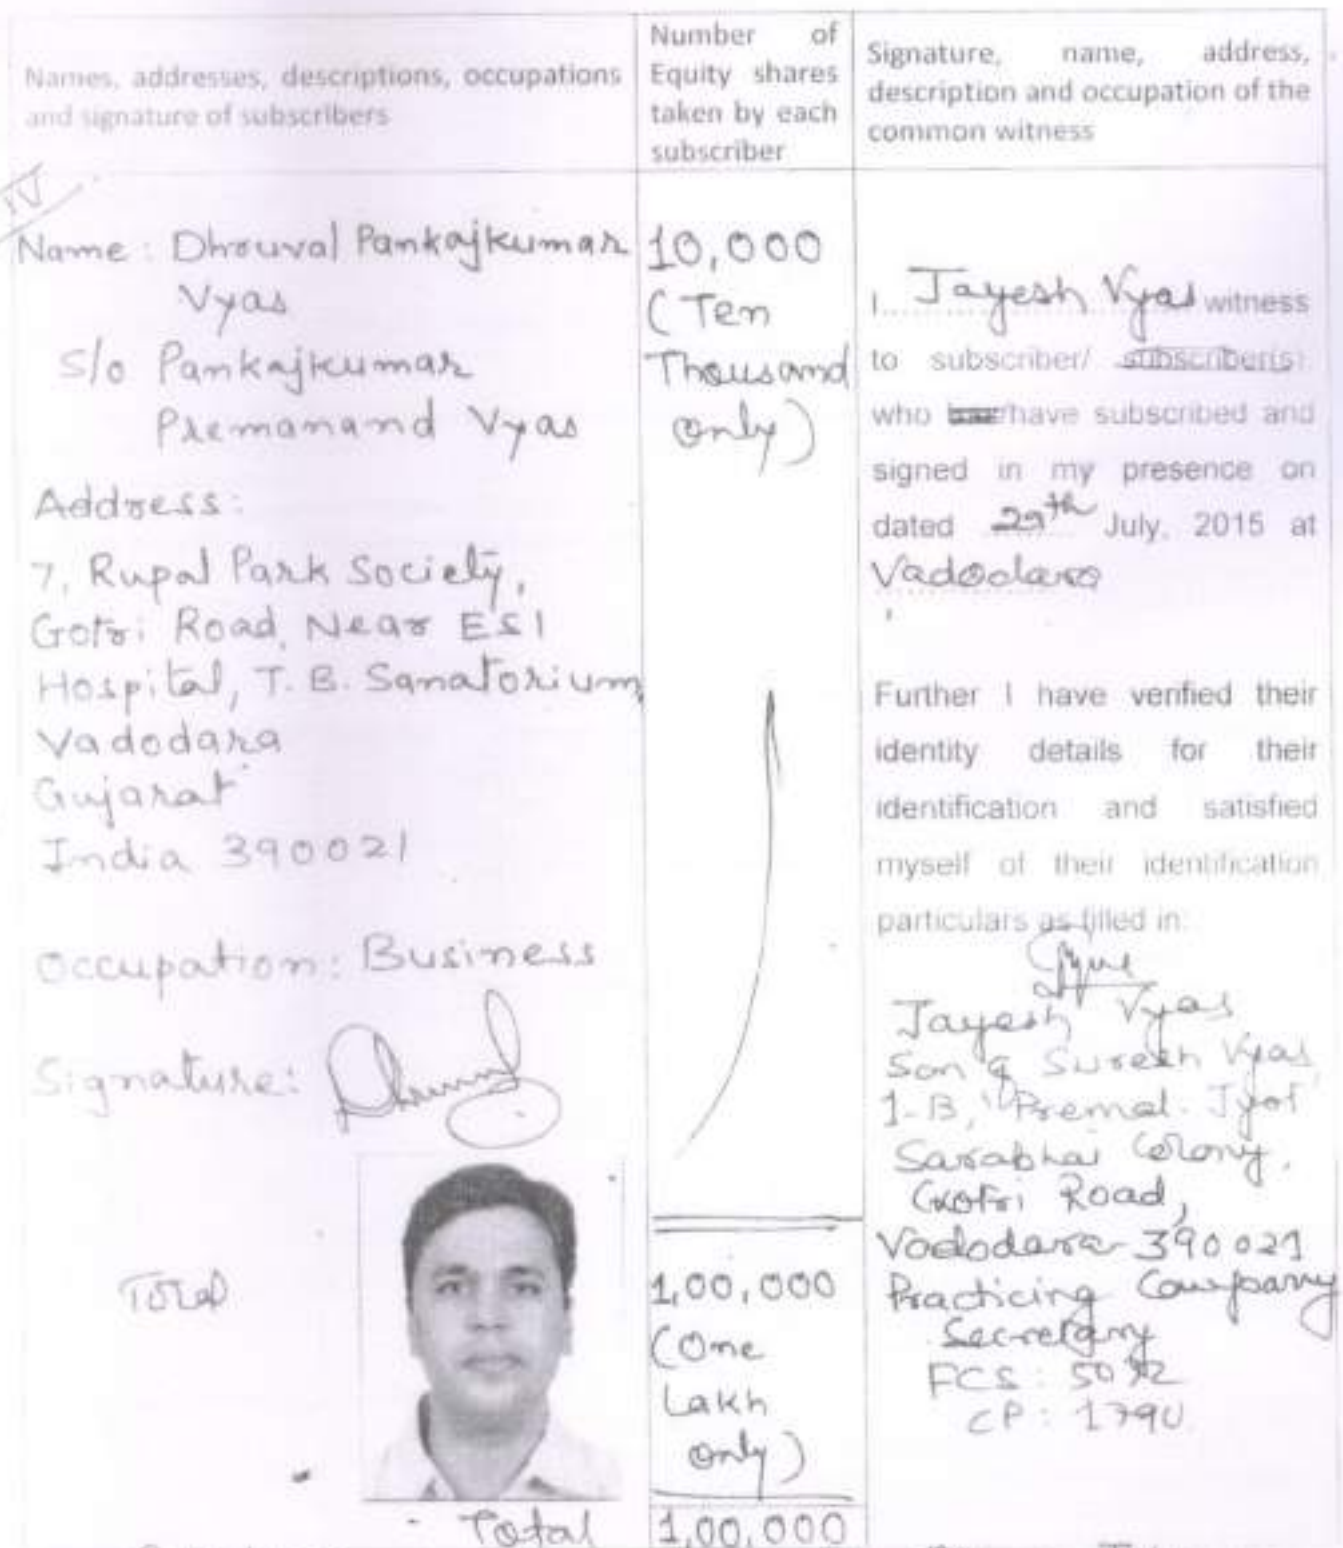 Names, addresses, descriptions, occupations
and signature of subscribers
Number of
Equity shares
taken by each
subscriber
Signature, name, address,
description and occupation of the
common witness
IV
Name: Dhruval Pankajkumar
Vyas
S/o Pankajkumar
Premanand Vyas
Address:
7, Rupal Park Society,
Gotri Road, Near ESI
Hospital, T.B. Sanatorium,
Vadodara
Gujarat
India 390021
Occupation: Business
Signature:
Total
Total
10,000
(Ten
Thousand
only)
1,00,000
(One
Lakh
only)
1,00,000
I.... Jayesh Vyas witness
to subscriber/ subscriber(s)
who has/have subscribed and
signed in my presence on
dated 29th July, 2015 at
Vadodara
Further I have verified their
identity details for their
identification and satisfied
myself of their identification
particulars as filled in.
Jayesh Vyas
Son of Suresh Vyas
1-B, "Premal Jyot
Sarabhai Colony,
Gotri Road,
Vadodara 390021
Practicing Company
Secretary
FCS:
CP: 1790